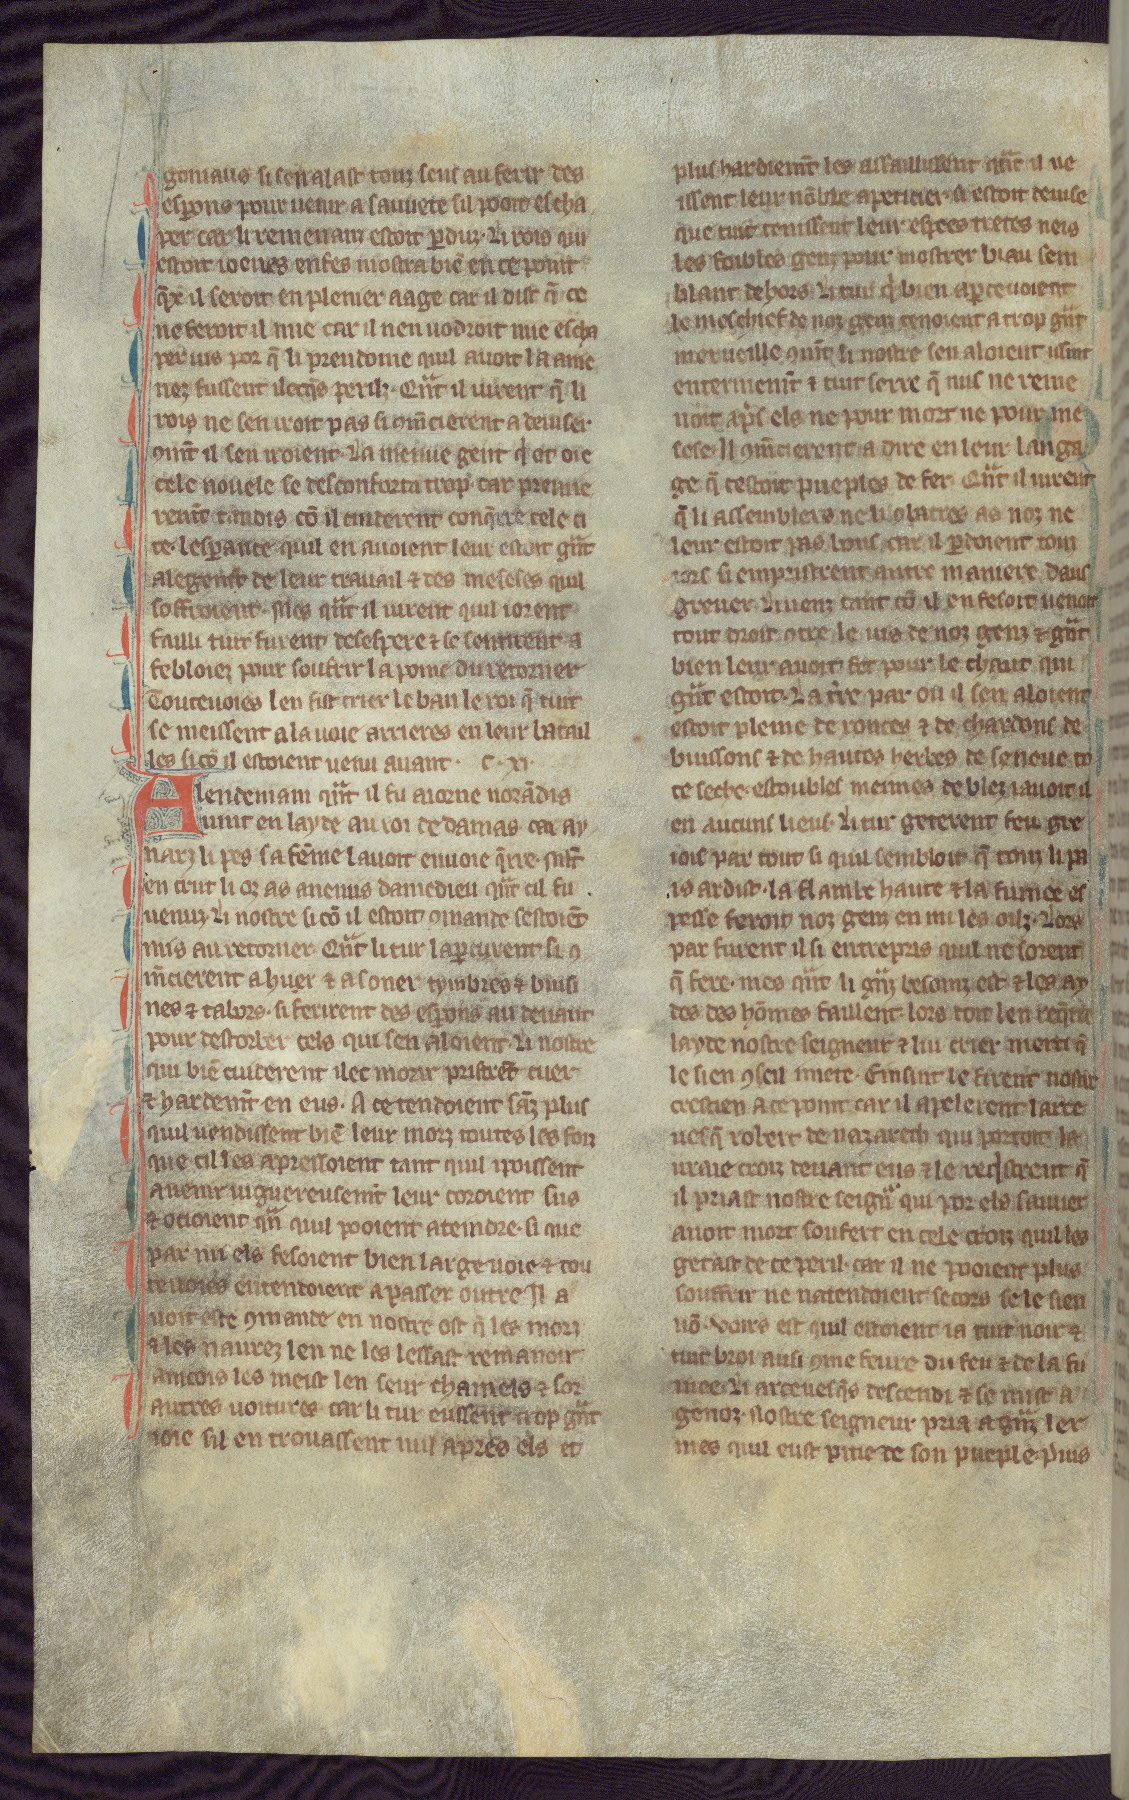 gomaus si sen alast touz seus au ferir des
esperons pour venir a sauvete sil pooit escha
per car li remenanz estoit pduz. Li rois qui
estoit ioenes enfes mostra biē en ce point
q̄ex il seroit en plenier aage car il dist q̄ ce
ne feroit il mie car il nen vodroit mie escha
per vis por q̄ li preudome quil avoit la ame
nez fussent ilecq̄s perilz. Qūt il virent q̄ li
rois ne sen iroit pas si 9m̄cierent a deviser
9mt̄ il sen iroient. La menue gent q̄ ot oie
cele novele se desconforta trop. car premie
rent tandis cō il cuiderent conq̄rre cele ci
te. lespance quil en avoient leur estoit gūt
alegemt̄ de leur travail & des meseses quil
soffroient. Mes qūt il virent quil iorent
failli tuit furent desespere & se sentirent a
febloiez pour soufrir la poine du retorner
Toutevoies len fist crier le ban le roi q̄ tuit
se meissent a la voie arrieres en leur batail
les si cō il estoient venu avant. C. xi.
A lendemain qūt il fu aiorne norādis
vint en layde au roi de damas. car ay
narz li pes sa fēme lavoit envoie q̄rre. sm̄t
en crut li oz as anemis damedieu qūt cil fu
venuz. Li nostre si cō il estoit 9mande sestoiēt
mis au retorner. Qūt li tur lapcurent si 9
m̄cierent a huer & a soner tymbres & buisi
nes & tabors. si ferirent des esperons au devant
pour destorber cels qui sen aloient. Li nostre
qui biē cuiderent ilec morir pristrēt cuer
& hardemt̄ en eus. A ce tendoient sāz plus
quil vendissent biē leur morz toutes les foiz
que cil les apressoient tant quil ipoissent
avenir viguereusemt̄ leur coroient sus
& ocioient qn̄ quil pooient ateindre. si que
par mi els fesoient bien large voie & tou
tevoies entendoient a passer outre Il a
voit este 9mande en nostre ost q̄ les morz
& les navrez len ne les lessast remanoir
aincois les meist len seur chamels & sor
autres voitures. car li tur eussent trop gūt
ioie sil en trovassent nul apres els et
plus hardiemt̄ les assaillissent qūt il ve
issent leur nōbre apeticier. Si estoit devise
que tuit tenissent leur espees tretes neis
les foibles genz pour mostrer biau sem
blant dehors. Li tur q̄ bien apcevoient
le meschief de noz genz tenoient a trop gūt
merveille 9mt̄ li nostre sen aloient issint
entermenit̄ & tuit serre q̄ nus ne reme
noit ap̄s els ne pour mort ne pour me
sese. Il 9m̄cierent a dire en leur langa
ge q̄ cestoit pueples de fer. Qūt il virent
q̄ li assemblers ne li olatres as noz ne
leur estoit pas bons car il pdoient touz
iors si empristrent autre maniere daus
grever. Li venz tant cō il en fesoit venoit
tout droit 9tre le vis de noz genz & gūt
bien leur avoit fet pour le chaut qui
gūt estoit. La tr̄re par ou il sen aloient
estoit pleine de ronces & de chardons de
buissons & de hautes herbes de seneve to
te seche. estoubles meimes de blez iavoit il
en aucuns lieus. Li tur geterent feu gre
iois par tout si quil sembloit q̄ touz li pa
is ardist. la flambe haute & la fumee es
pesse feroit noz genz en mi les oilz. Lors
par furent il si entrepris quil ne sorent
q̄ fere. mes qūt li gūz besoinz est & les ay
des des hōmes faillent. lors doit len req̄rre
layde nostre seigneur & lui crier merci q̄
le sien 9seil imete. Einsint le firent nostre
crestien a ce point car il apelerent larce
vesq̄ robert de nazareth qui portoit la
vraie croiz devant eus & le req̄strent q̄
il priast nostre seignr̄ qui por els sauver
avoit mort soufert en cele croiz quil les
getast de ce peril. car il ne pooient plus
souffrir ne natendoient secors se le sien
nō. Voirs est quil estoient ia tuit noir &
tuit broi ausi 9me fevre du feu & de la fu
mee. Li arcevesq̄s descendi & se mist a
genoz. Nostre seigneur pria a gūz ler
mes quil eust pitie de son pueple. Puis